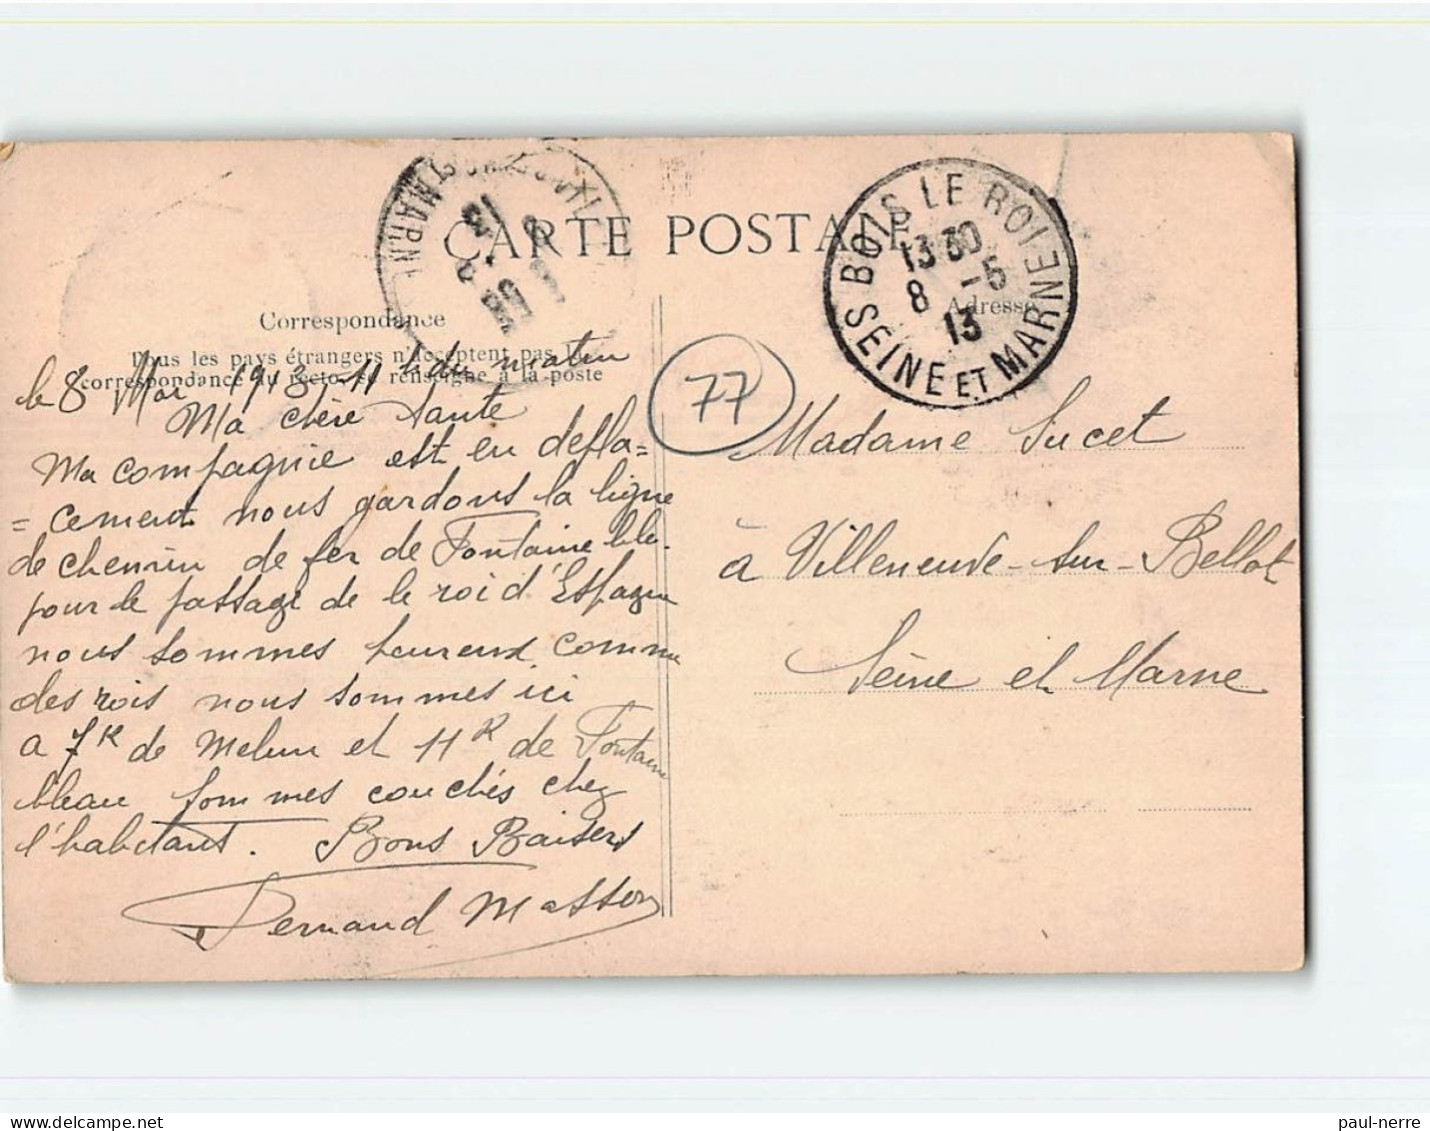 CARTE POSTALE
Correspondance
Tous les pays étrangers n'acceptent pas la
correspondance au recto, se renseigne à la poste
Adresse
BOIS LE ROI
13 30
8 -5
13
SEINE ET MARNE
77
le 8 Mai 1913 11h du matin
Ma chère tante
Ma compagnie est en depla=
=cement nous gardons la ligne
de chemin de fer de Fontaineble.
pour le passage de le roi d'Espagne
nous sommes heureux comme
des rois nous sommes ici
a 7K de Melun et 11K de Fontaine
bleau sommes couchés chez
l'habitant. Bons Baisers
Fernand Masson
Madame Sucet
à Villeneuve-sur-Bellot
Seine et Marne
paul-nerre